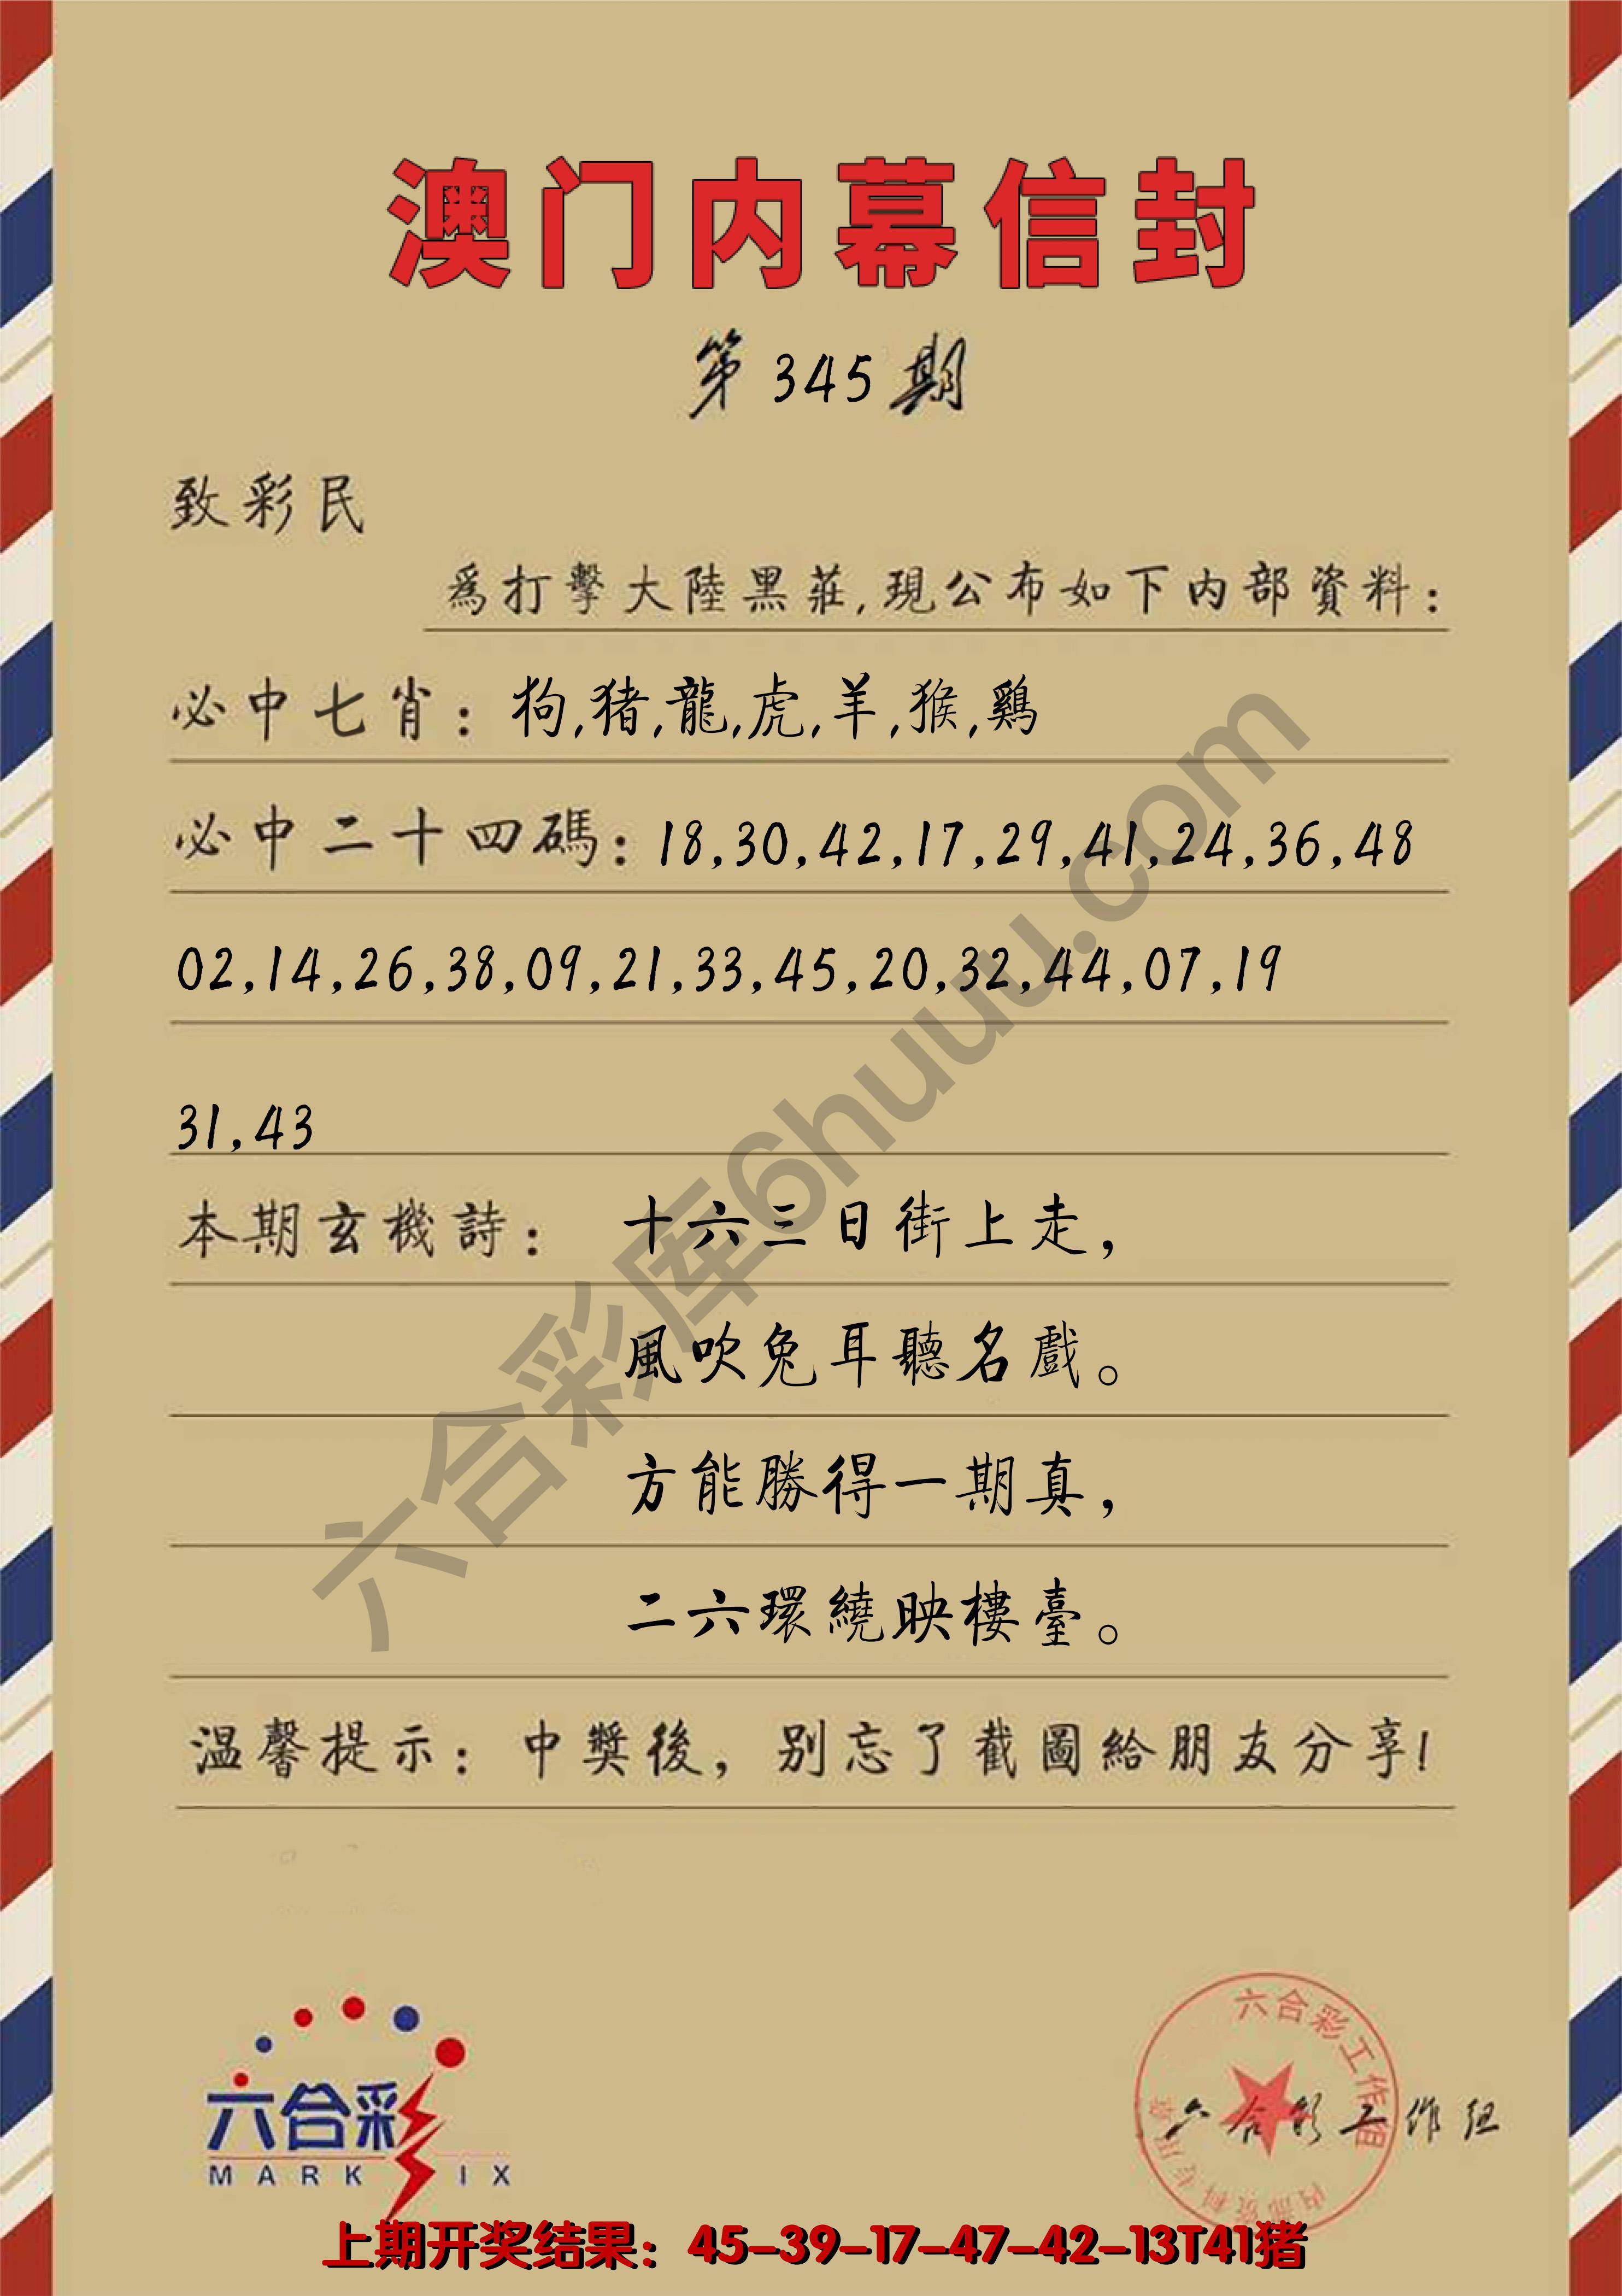 澳门内幕信封
第345期
致彩民
爲打擊大陸黑莊,現公布如下内部資料:
必中七肖:狗,猪,龍,虎,羊,猴,鷄
必中二十四碼:18,30,42,17,29,41,24,36,48
02,14,26,38,09,21,33,45,20,32,44,07,19
31,43
本期玄機詩: 十六三日街上走,
風吹兔耳聽名戲。
方能勝得一期真,
二六環繞映樓臺。
温馨提示:中獎後,别忘了截圖給朋友分享!
六合彩库6huuu.com
六合彩
MARK IX
六合彩工作组
六合彩工作组
上期开奖结果:45-39-17-47-42-13T41猪